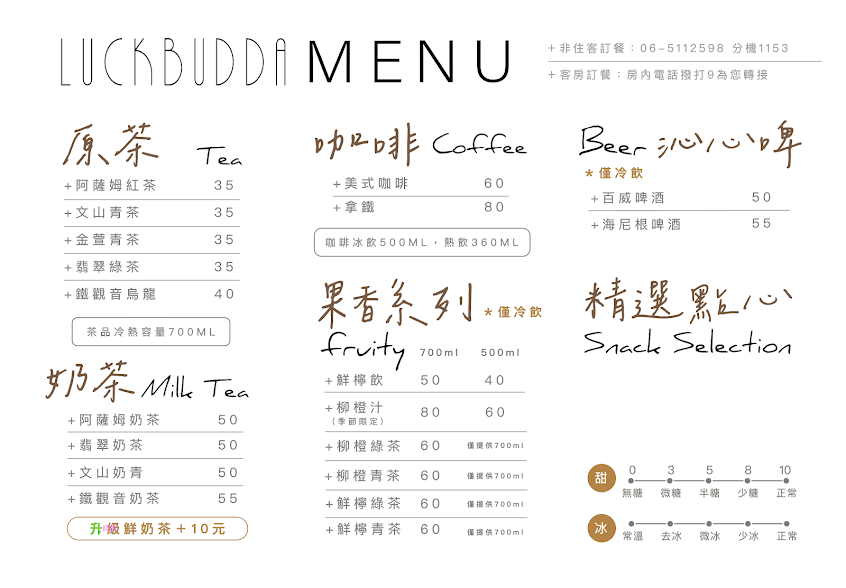 LUCKBUDDA MENU
+非住客訂餐：06-5112598 分機1153
+客房訂餐：房內電話撥打9為您轉接
原茶 Tea
+阿薩姆紅茶 35
+文山青茶 35
+金萱青茶 35
+翡翠綠茶 35
+鐵觀音烏龍 40
茶品冷熱容量700ML
奶茶 Milk Tea
+阿薩姆奶茶 50
+翡翠奶茶 50
+文山奶青 50
+鐵觀音奶茶 55
升級鮮奶茶+10元
咖啡 Coffee
+美式咖啡 60
+拿鐵 80
咖啡冰飲500ML，熱飲360ML
果香系列 *僅冷飲
fruity 700ml 500ml
+鮮檸飲 50 40
+柳橙汁 80 60
（季節限定）
+柳橙綠茶 60 僅提供700ml
+柳橙青茶 60 僅提供700ml
+鮮檸綠茶 60 僅提供700ml
+鮮檸青茶 60 僅提供700ml
Beer 沁心啤
*僅冷飲
+百威啤酒 50
+海尼根啤酒 55
精選點心
Snack Selection
甜 0 3 5 8 10
無糖 微糖 半糖 少糖 正常
冰
常溫 去冰 微冰 少冰 正常